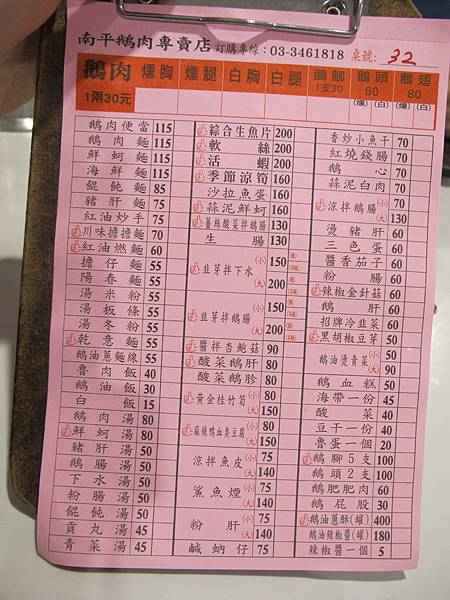 南平鵝肉專賣店 訂購專線:03-3461818 桌號: 32
鵝肉 1兩30元 燻胸 燻腿 白胸 白腿 鵝腳 1支30 鵝頭 60 (燻)(白) 鵝翅 80 (燻)(白)
鵝肉便當 115
鵝肉麵 115
鮮蚵麵 115
海鮮麵 115
餛飩麵 85
豬肝麵 75
紅油炒手 75
川味擔擔麵 70
紅油燃麵 60
擔仔麵 55
陽春麵 55
湯米粉 55
湯板條 55
湯冬粉 55
乾意麵 55
鵝油蔥麵線 55
魯肉飯 40
鵝油飯 30
白飯 15
鵝肉湯 80
鮮蚵湯 80
豬肝湯 50
鵝腸湯 50
下水湯 50
粉腸湯 50
餛飩湯 50
貢丸湯 45
青菜湯 45
綜合生魚片 200
軟絲 200
活蝦 200
季節涼筍 160
沙拉魚蛋 160
蒜泥鮮蚵 160
薑絲酸菜拌鵝腸 130
生腸 130
韭芽拌下水 (小) 150 (大) 200
韭芽拌鵝腸 (小) 150 (大) 200
醬拌杏鮑菇 90
酸菜鵝肝 80
酸菜鵝胗 80
黃金桂竹筍 (小) 80 (大) 150
麻辣鴨血臭豆腐 (小) 80 (大) 150
涼拌魚皮 (小) 75 (大) 140
鯊魚煙 (小) 75 (大) 140
粉肝 (小) 75 (大) 140
鹹蚋仔 75
香炒小魚干 70
紅燒錢腸 70
鵝心 70
蒜泥白肉 70
涼拌鵝腸 (小) 70 (大) 130
燙豬肝 60
三色蛋 60
醬香茄子 60
粉腸 60
辣椒金針菇 60
鵝肝 60
招牌冷韭菜 60
黑胡椒豆芽 50
鵝油燙青菜 (小) 50 (大) 90
鵝血糕 50
海帶一份 45
酸菜 40
豆干一份 40
魯蛋一個 20
鵝腳5支 100
鵝頭2支 100
鵝肥肥肉 60
鵝屁股 30
鵝油蔥酥(罐) 400
鵝油辣椒醬(罐) 180
辣椒醬一個 5